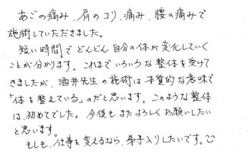 あごの痛み、肩のコリ、痛み、腰の痛みで
施術していただきました。
短い時間でどんどん自分の体が変化していく
ことが分かります。これまでいろいろな整体を受けて
きましたが、酒井先生の施術は本質的な意味で
「体を整えている」のだと思います。このような整体
は初めてでした。今後もまたよろしくお願いしたい
と思います。
もしも、仕事を変えるなら、弟子入りしたいです。